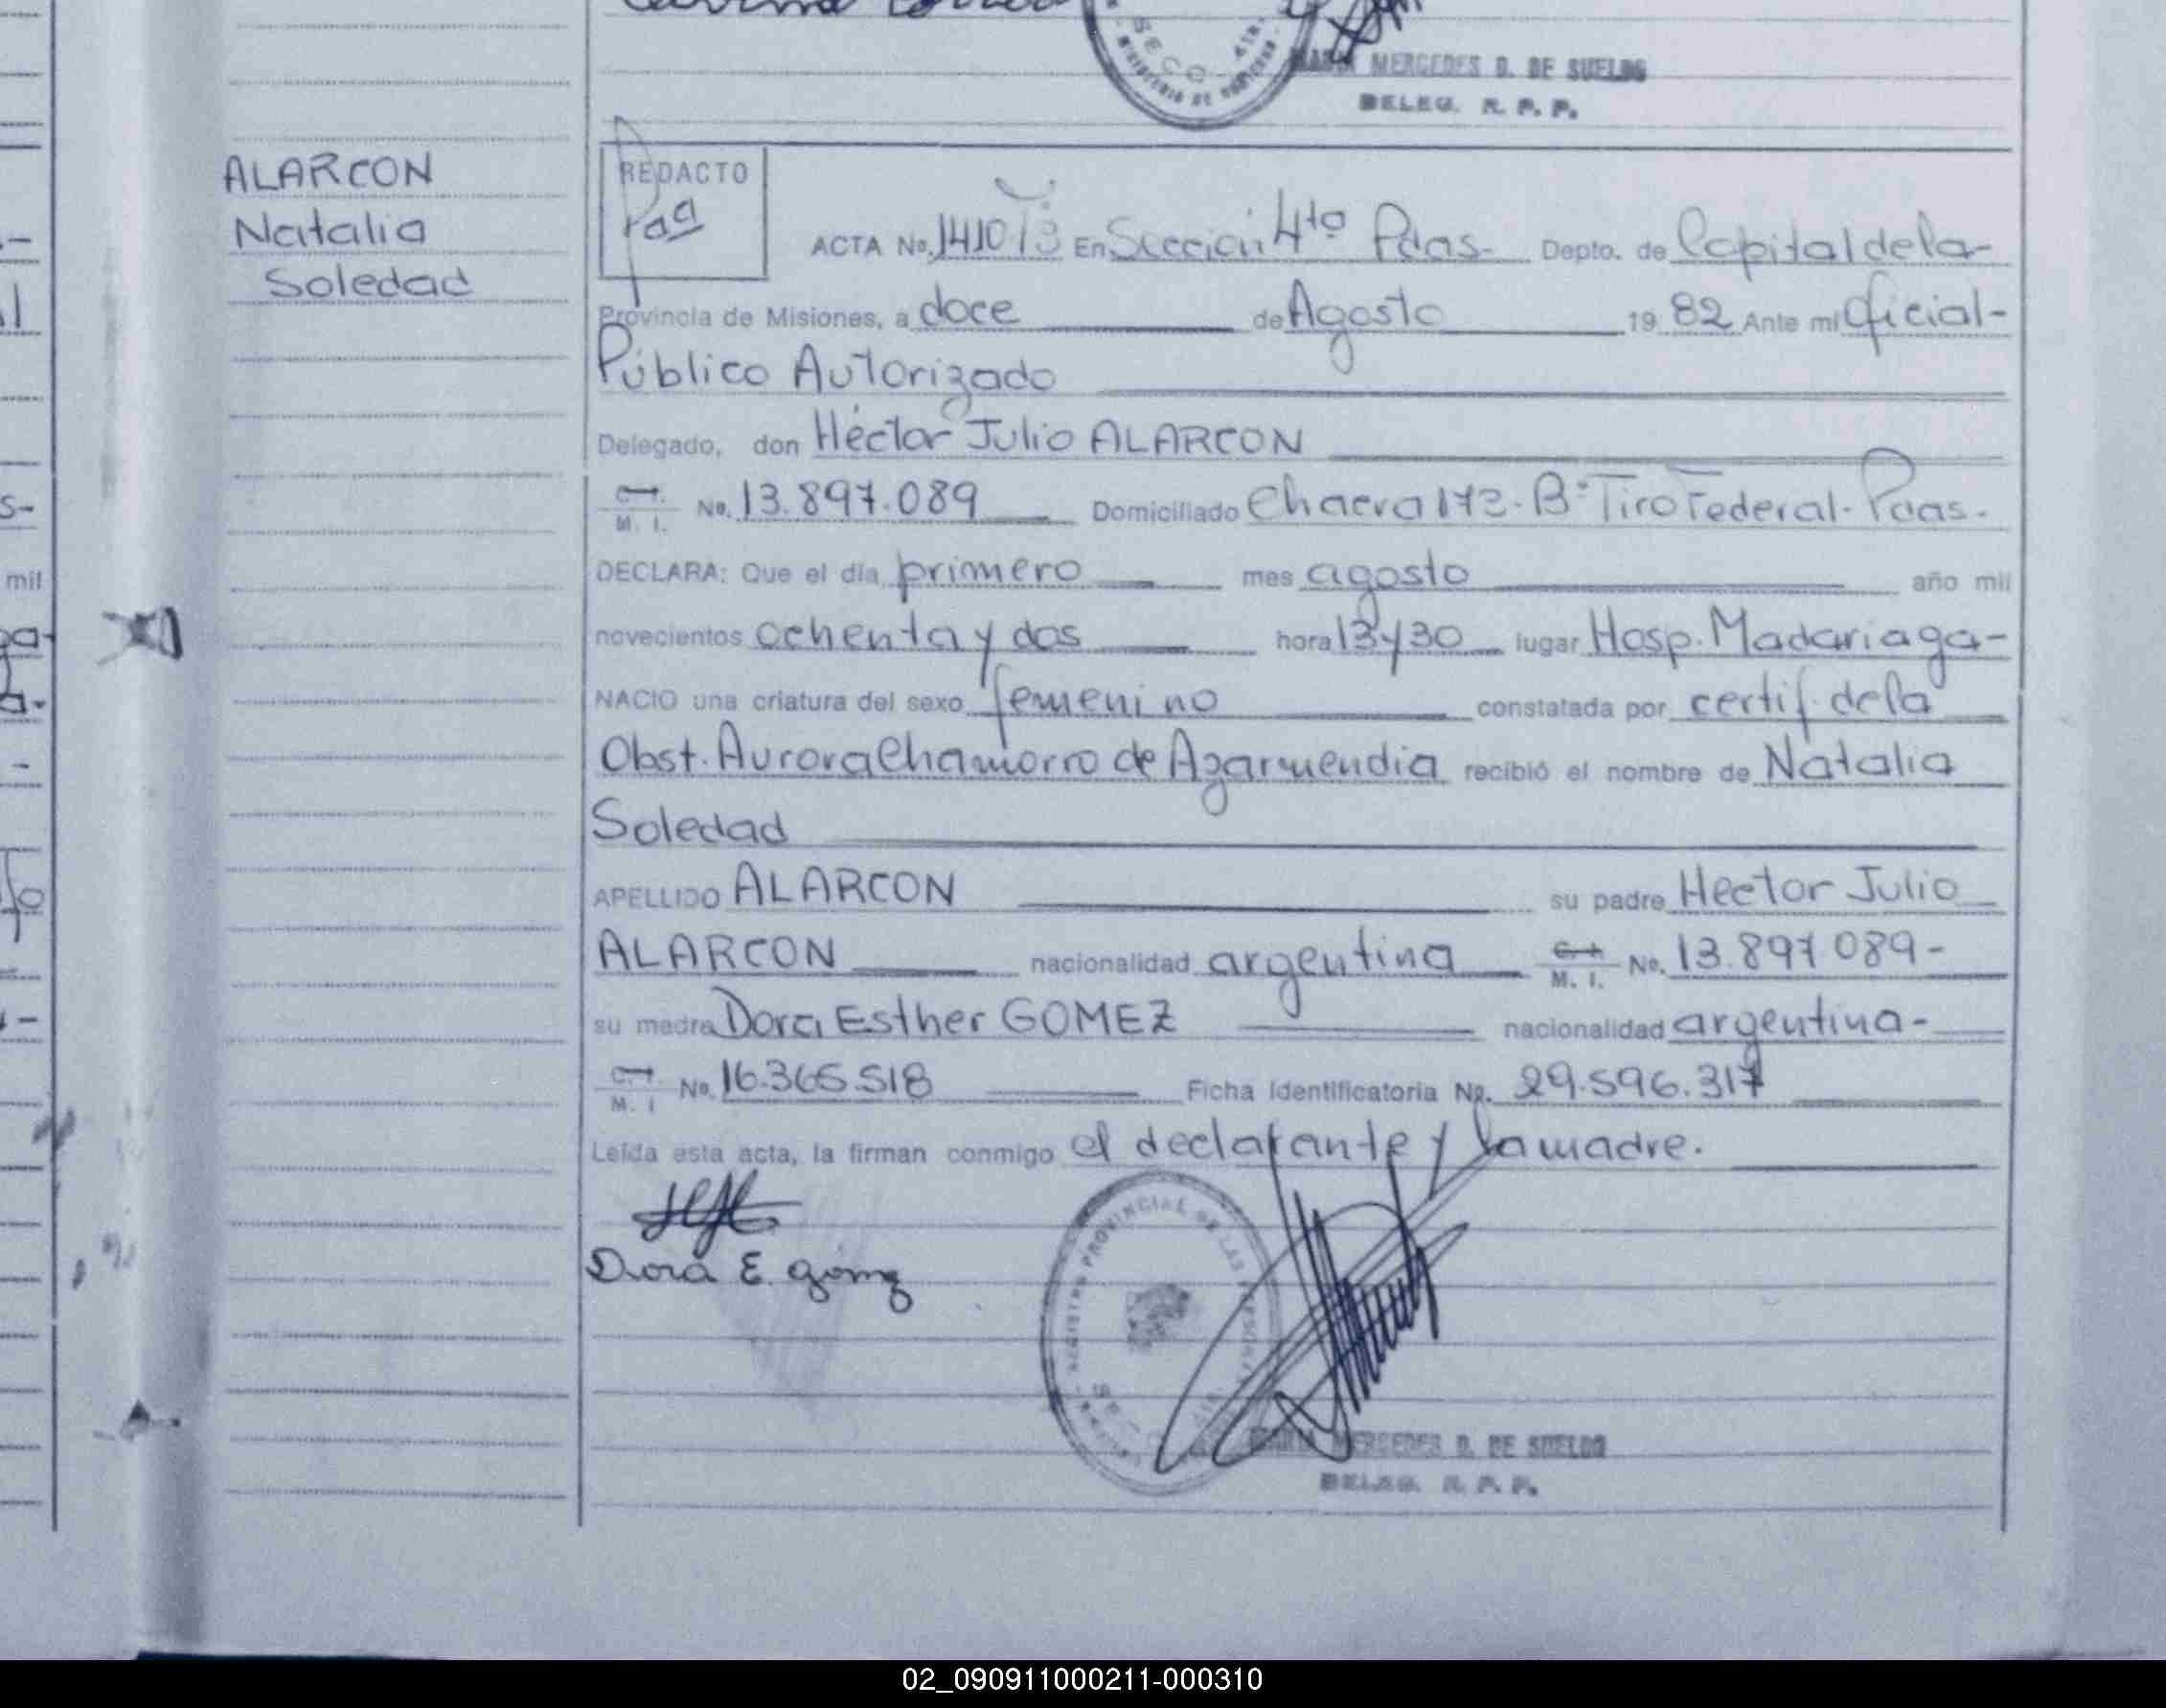 MERCEDES D. DE SUELDO
DELEG. R. P. P.
ALARCON
Natalia
Soledad
REDACTO
ACTA No. En Sección 4ta Pdas- Depto. de Capital de la-
Provincia de Misiones, a doce de Agosto 19 82 Ante mi Oficial-
Público Autorizado
Delegado, don Héctor Julio ALARCON
C. I. M. I. No. 13.897.089 Domiciliado Chacra 172- B° Tiro Federal- Pdas.
DECLARA: Que el día primero mes agosto año mil
novecientos ochenta y dos hora 13 y 30 lugar Hosp. Madariaga-
NACIO una criatura del sexo femenino constatada por certif. de la
Obst. Aurora Chamorro de Azarmendia recibió el nombre de Natalia
Soledad
APELLIDO ALARCON su padre Hector Julio
ALARCON nacionalidad argentina C. I. M. I. No. 13.897 089-
su madre Dora Esther GOMEZ nacionalidad argentina-
C. I. M. I No. 16.365.518 Ficha Identificatoria No. 29.596.317
Leída esta acta, la firman conmigo el declarante y la madre.
Dora E. gómez
REGISTRO PROVINCIAL DE LAS PERSONAS
MERCEDES D. DE SUELDO
DELEG. R. P. P.
mil
02_090911000211-000310